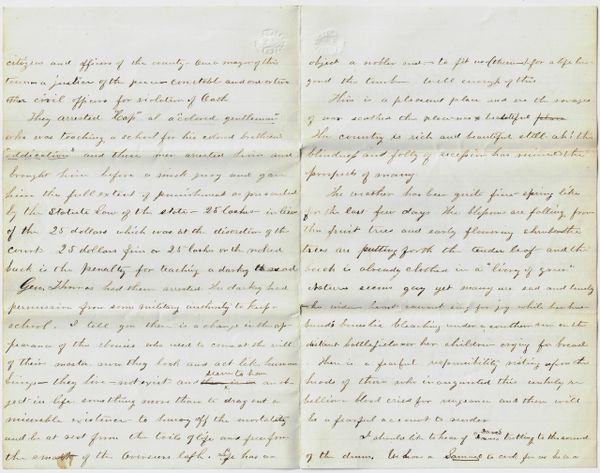 citizens and officers of the county one a mayor of the
town a justice of the peace constable and one or two
other civil officers for violation of Oath
They arrested "Cap" al a "colored gentleman"
who was teaching a school for his colored brethren
"addication" and these men arrested him and
brought him before a mock jury and gave
him the full extent of punishment as presented
by the Statute Law of the state - 25 lashes in lieu
of the 25 dollars which was at the discretion of the
court 25 dollars fine or 25 lashes on the naked
back is the penalty for teaching a darky to read
Gen. Thomas had them arrested the darky had
permission from some military authority to keep
school. I tell you there is a change in the ap-
pearance of the slaves who used to come at the will
of their master now they look and act like human
beings they live - not exist and seem to have an ob-
ject in life something more than to drag out a
miserable existence to throw off the mortality
and be at rest from the toils of life and free from
the smart of the overseers lash. He has an
object a nobler one - to fit us (them) for a life be-
yond the tomb well enough of this
This is a pleasant place and ere the ravages
of war scathed the place was beautiful
The country is rich and beautiful still ah! the
blindness and folly of secession has ruined the
prospects of many
The weather has been quite fine spring like
for the last few days The blossoms are falling from
the fruit trees and early flowering shrubs the
trees are putting forth the tender leaf and the
beech is already clothed in a "living green"
Nature seems gay yet many are sad and lonely
the widow cannot sing for joy while her hus-
bands bones lie bleaching under a southern sun on the
distant battlefield or her children crying for bread
There is a fearful responsibility resting upon the
heads of those who inaugurated this unholy re-
bellion blood cries for vengeance and there will
be a fearful account to render
I should like to hear of Dave trotting to the sound
of the drum. We have a Samuel to